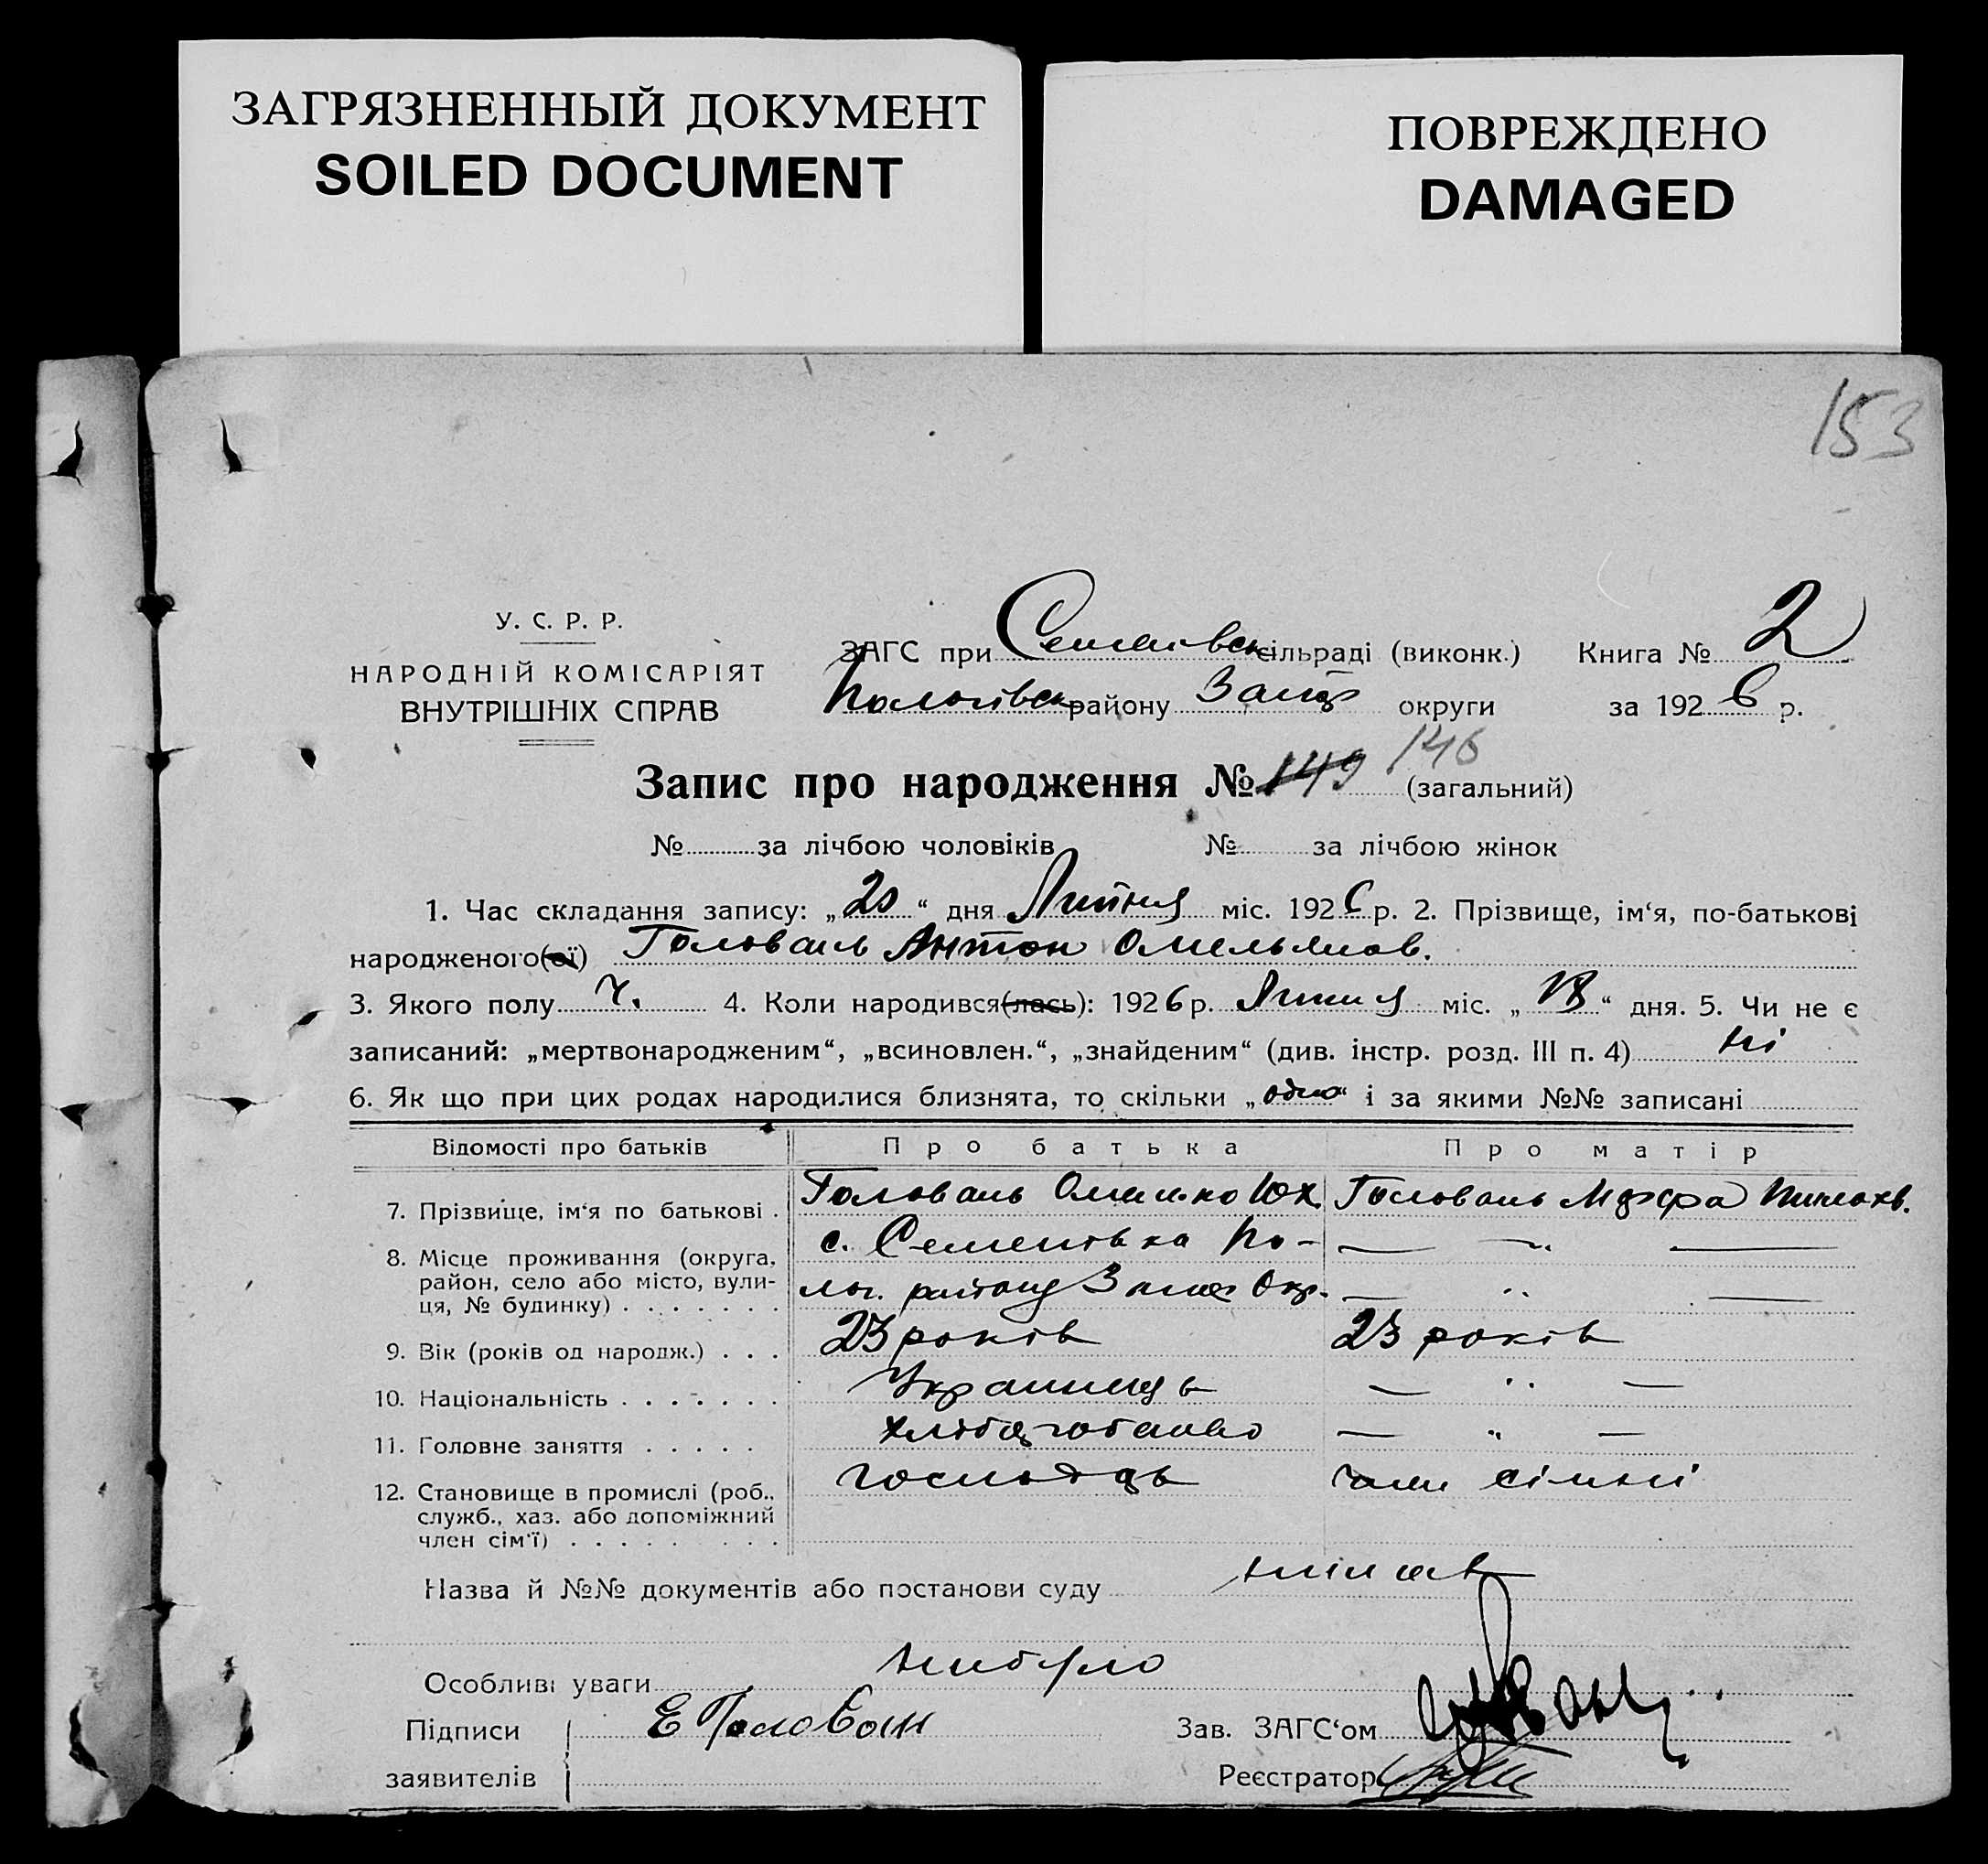 ЗАГРЯЗНЕННЫЙ ДОКУМЕНТ
SOILED DOCUMENT
ПОВРЕЖДЕНО
DAMAGED
153
У. С. Р. Р.
НАРОДНІЙ КОМІСАРІЯТ
ВНУТРІШНІХ СПРАВ
ЗАГС при Семенівськ сільраді (виконк.) Книга № 2
Пологівськ району Запор округи за 1926 р.
Запис про народження № 149 146 (загальний)
№ за лічбою чоловіків № за лічбою жінок
1. Час складання запису: „20“ дня Липня міс. 1926 р. 2. Прізвище, ім‘я, по-батькові
народженого(ої) Головань Антон Омельянов.
3. Якого полу Ч. 4. Коли народився(лась): 1926 р. Липня міс. „18“ дня. 5. Чи не є
записаний: „мертвонародженим“, „всиновлен.“, „знайденим“ (див. інстр. розд. III п. 4) ні
6. Як що при цих родах народилися близнята, то скільки „одно“ і за якими №№ записані
Відомості про батьків Про батька Про матір
7. Прізвище, ім‘я по батькові . Головань Омелько Юх. Головань
8. Місце проживання (округа, район, село або місто, вули- ця, № будинку) . . . . . . . с. Семенівка По- — „ —
лог. району Запор Окр. — „ —
9. Вік (років од народж.) . . . 23 років 23 років
10. Національність . . . . . . . Українець — „ —
11. Головне заняття . . . . . — „ —
12. Становище в промислі (роб., служб., хаз. або допоміжний член сім‘ї) . . . . . . . . господарь член сімні
Назва й №№ документів або постанови суду
Особливі уваги небуло
Підписи Е Голован Зав. ЗАГС‘ом
заявителів Реєстратор